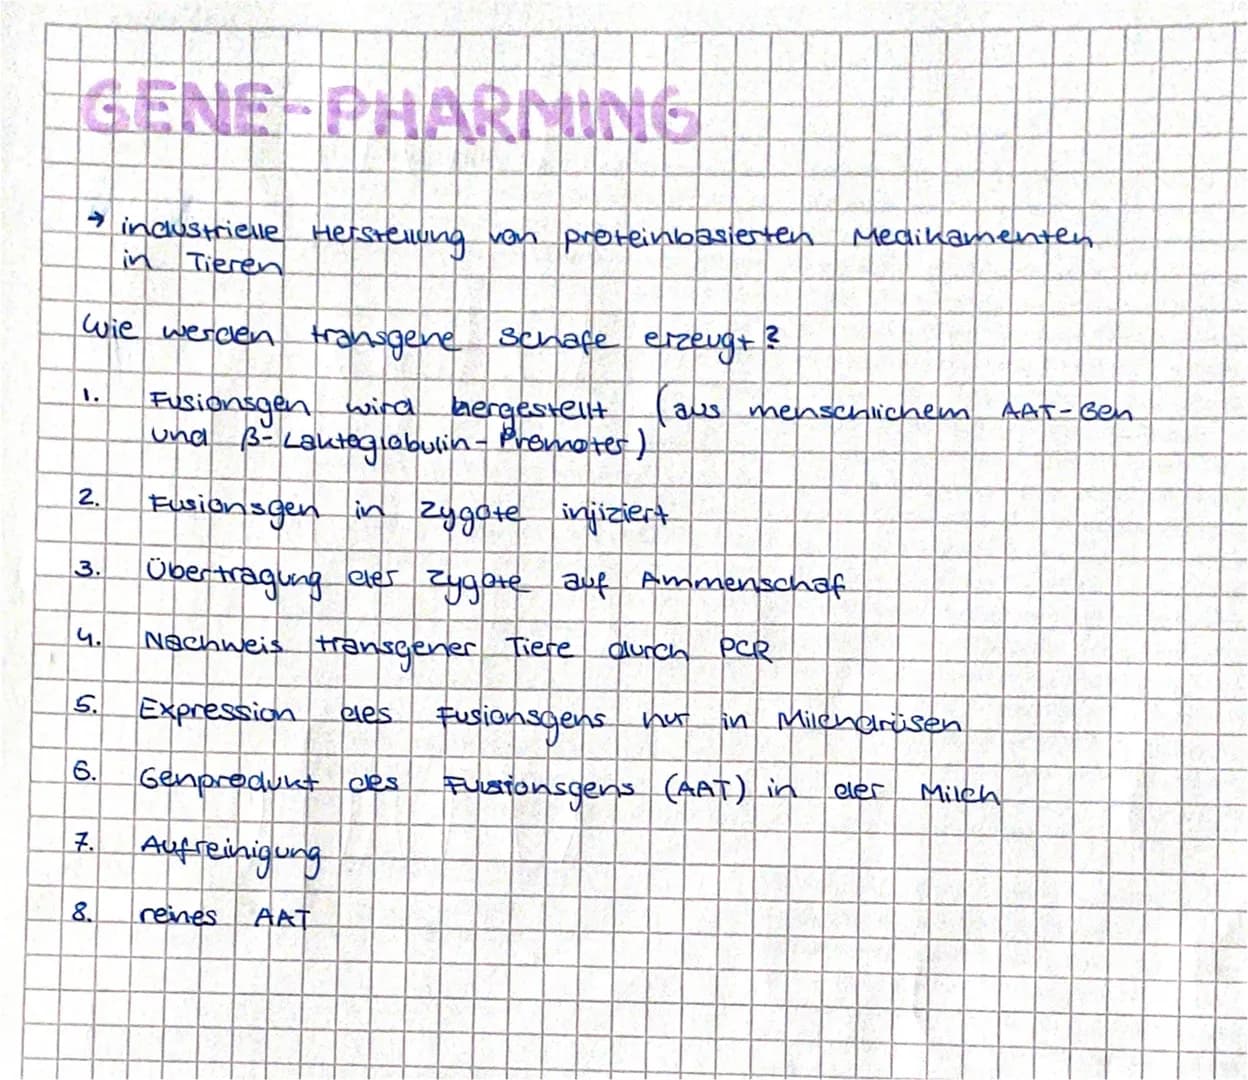 GENE-PHARMING
→ industrielle Herstellung von proteinbasierten Medikamenten
in Tieren
Wie werden transgene Schafe erzeugt?
1. Fusionsgen wird hergestellt (aus menschlichem AAT-Gen
und β-Laktoglobulin-Promoter)
2. Fusionsgen in Zygote injiziert
3. Übertragung der Zygote auf Ammenschaf
4. Nachweis transgener Tiere durch PCR
5. Expression des Fusionsgens nur in Milchdrüsen
6. Genprodukt des Fusionsgens (AAT) in der Milch
7. Aufreinigung
8. reines AAT